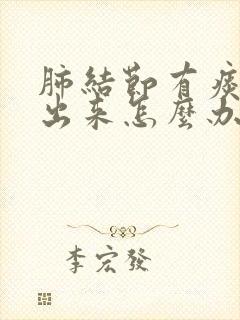 肺結節有痰
出来怎麼办
李宏發